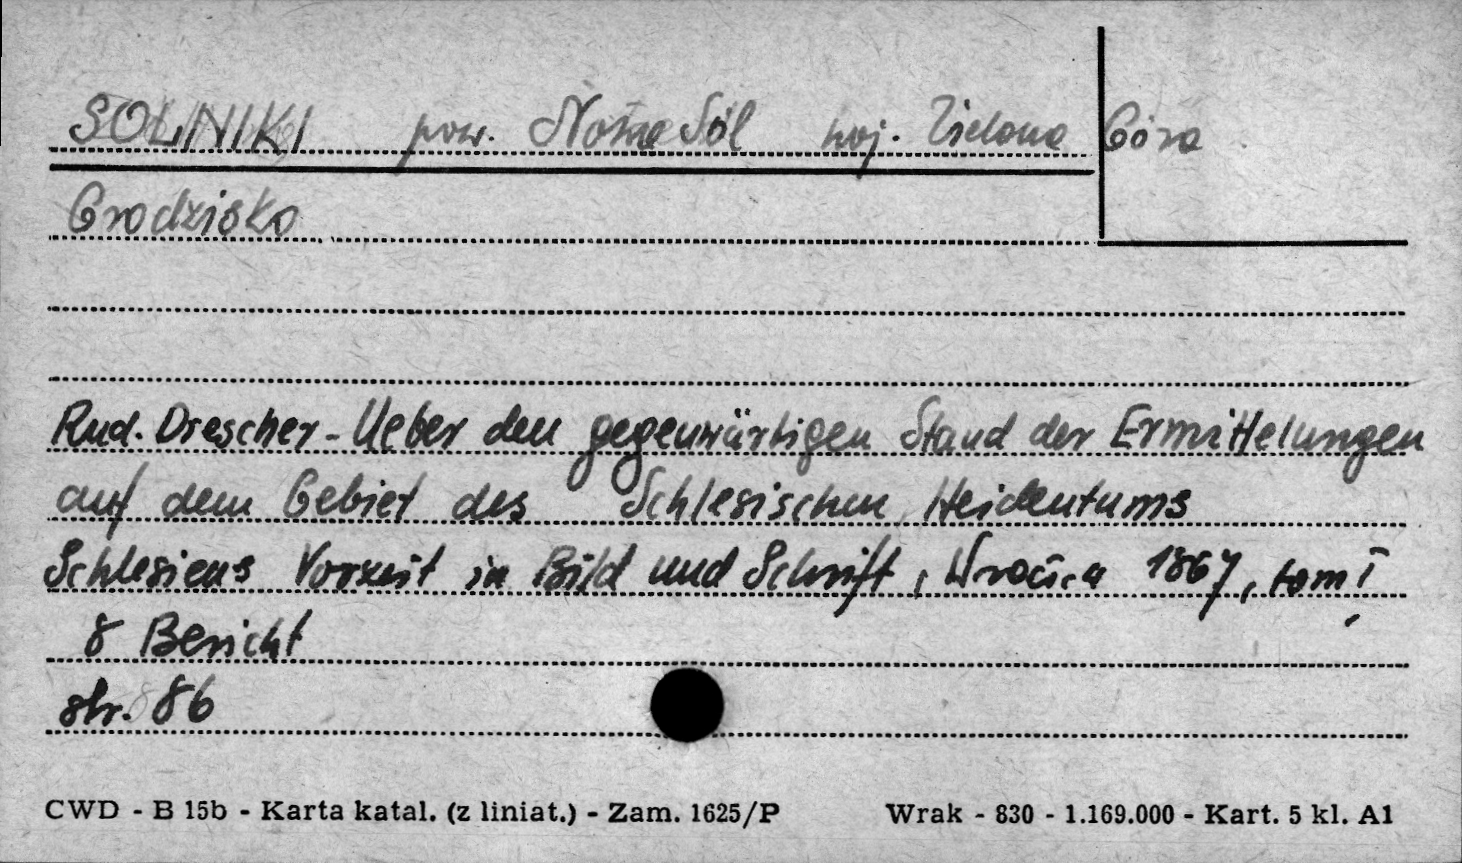 SOLNIKI pow. Nowa Sól woj. Zielona Góra
Grodzisko
Rud. Drescher - Ueber den gegenwärtigen Stand der Ermittelungen
auf dem Gebiet des Schlesischen Heidentums
Schlesiens Vorzeit in Bild und Schrift, 1867, tom I
8 Bericht
str. 86
CWD - B 15b - Karta katal. (z liniat.) - Zam. 1625/P Wrak - 830 - 1.169.000 - Kart. 5 kl. A1